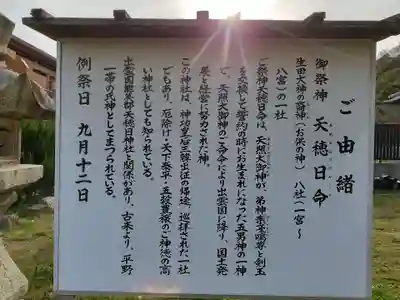 ご由緒
御祭神 天穂日命
生田大神の裔神（お供の神） 八社（一宮～
八宮）の一社
ご祭神天穂日命は、天照大御神が、弟神素盞嗚尊と剣玉
を交換して誓約の時にお生まれになった五男神の一神
で、天照大御神のご命令により出雲国に降り、国土発
展と経営に努力された神。
この神社は、神功皇后三韓出征の帰途、巡拝された一社
でもあり、厄除け・天下泰平・五穀豊穣のご神徳の高
い神社としても知られている。
出雲国能義郡天穂日命神社と関係があり、古来より、平野
一帯の氏神としてまつられている。
例祭日 九月十二日